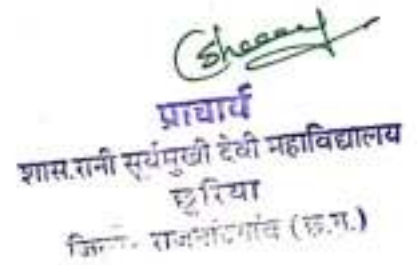 प्राचार्य
शास.रानी सुर्यमुखी देवी महाविद्यालय
छुरिया
राजनांदगांव (छ.ग.)